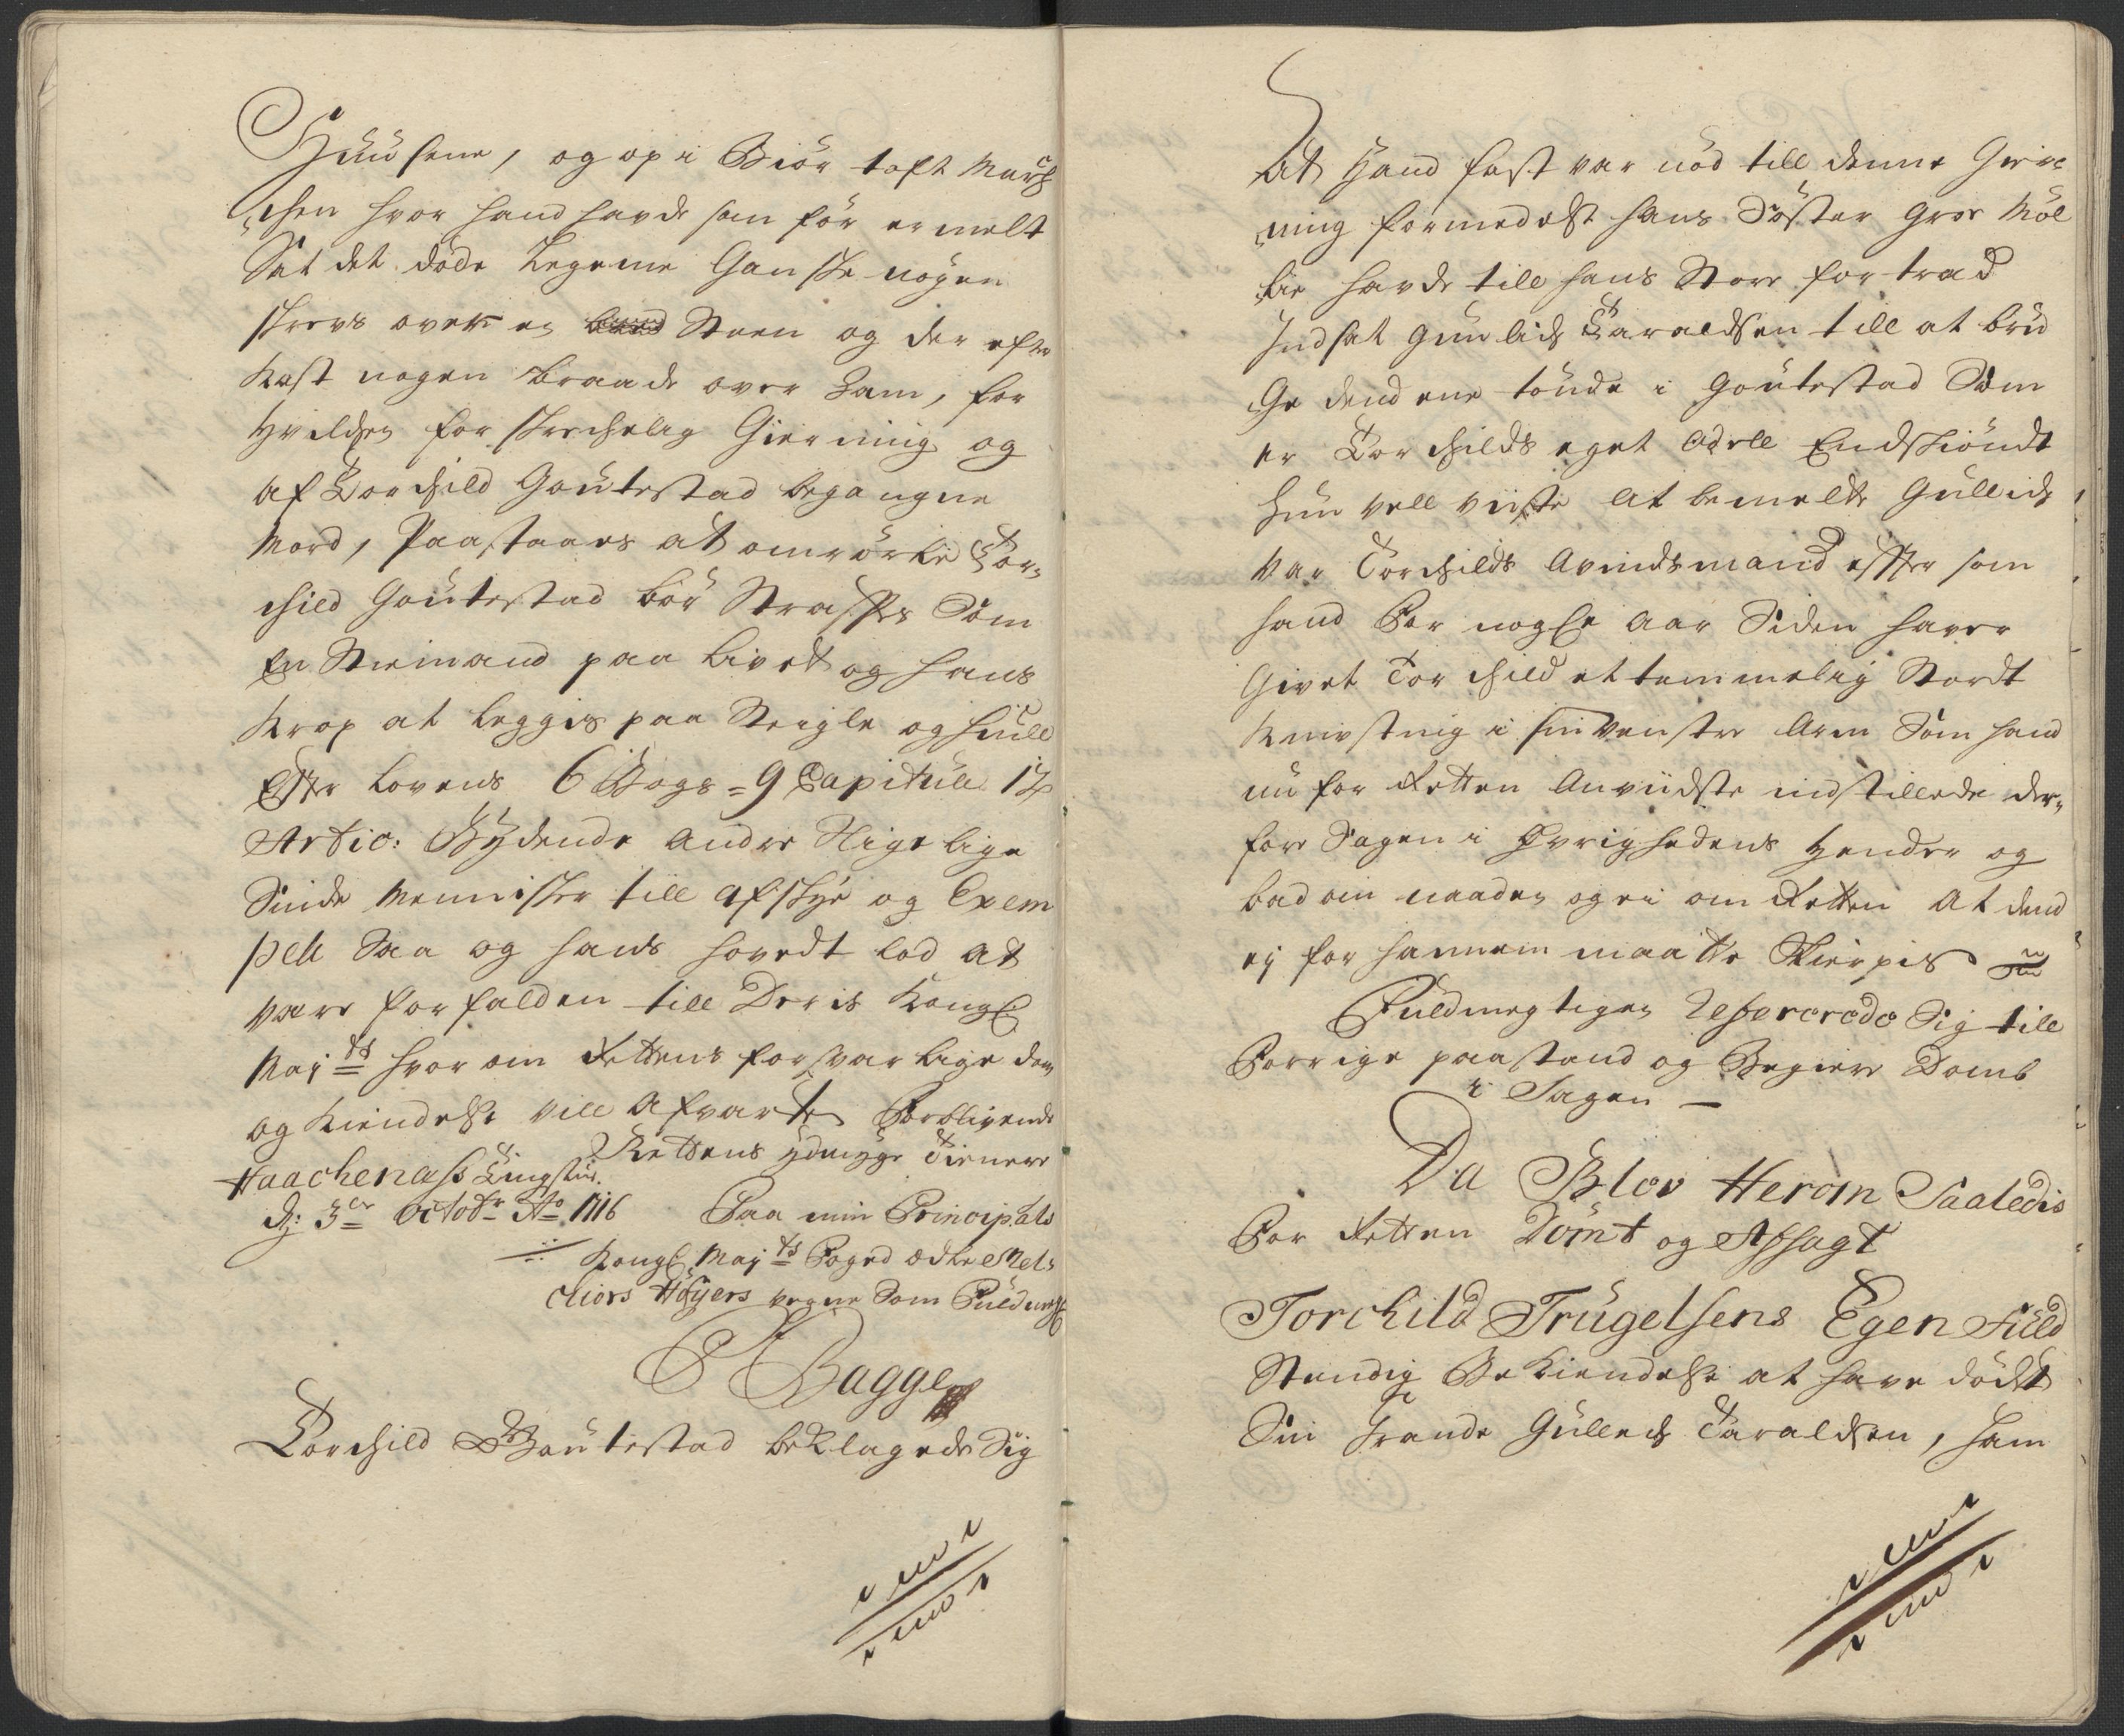 Huusene, og op i Biör toft March
chen hvor hand havde som för er melt
Sat det döde Legeme Gandske nögen
skrevs over en Steen og der efter
Kast nogen braade over Ham, for
Hvilchen for skrechelig Gierning og
af Torchild Goutestad begangne
Mord, Paastaaes at omrörte Tor¬
child Goutestad bör Straffes Som
En Niemand paa Livet og hans
Krop at leggis paa Steigle og hiull
Efter Lovens 6 Bogs = 9 Capitull 12
Artic: Bydende andre Slige lige
Sinde Mennisker till afskye og Exem
pell Saa og hans hovedt lod at
være forfalden till Deris Kongl
Maytz hvor om Rettens forsvarlige dom
og Kiendelse vill afvarte Forblivende
Rettens ydmyge tienere
Haachenaß Tingstue.
d: 3er Octobr Ao 1716 Paa min Principals
Kongl Maytz Foged ædle Mel¬
chiors Höyers vegne Som Fuldmegt
Bagge
Torchild Goutestad beklagede Sig
At Hand fast var nöd till denne Gier¬
ning formedelst hans Söster Groe Möl
lie havde till hans Store fortræd
Indsat Gunlich Taraldsen till at bru
ge dend ene tönde i Goutestad Som
er Torchilds eget Odell Endskiöndt
hun vell viiste At bemelte Gullich
var Torchilds Avindsmand efter som
hand For nogle Aar Siden haver
Givet Torchild et temmelig Stordt
Knivsting i sin Venstre Arm Som hand
nu for Retten Anviidste indstillede der¬
fore Sagen i Øvrighedens Hender og
bad om naade og ei om Retten At dend
ej for hannem maatte Skierpis
Fuldmegtigen Refererede Sig till
Forrige paastand og Begiere Domb
i Sagen
Da Blev Herom Saaledis
For Retten Dömt og Afsagt
Torchild Trugelsens Egen Fuld
Stendig Bekiendelse at have dödt
Sin Grande Gullech Taraldsen, ham